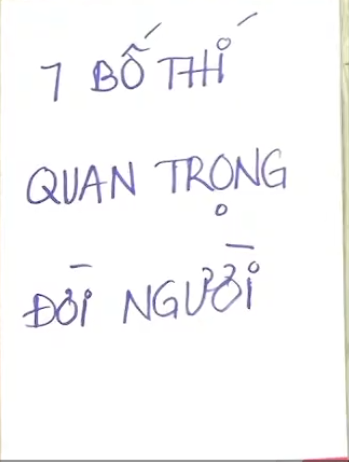 7 BỐ THÍ
QUAN TRỌNG
ĐỜI NGƯỜI